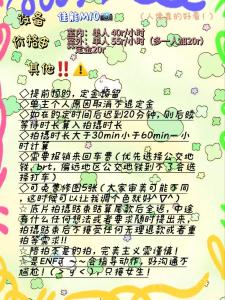 设备 佳能M10📷
（人像真的好看！）
价格
室内：单人 40r/小时
室外：单人 55r/小时（多一人加20r）
定金20r
其他‼️⚠️
◇提前预约，定金预留
◇单主个人原因取消不退定金
◇如在约定时间后迟到20分钟，则后续
等待时长算入拍摄时长
◇拍摄时长大于30min小于60min一小
时计算
◇需要报销来回车费（优先选择公交地
铁，brt，偏远地区公交地铁到不了会选
择打车）
◇可免费修图5张（大家审美可能不同
，这时候可以让我调个色就好^▽^）
☆底片拍摄结束结算尾款后全送，中途
有什么任何想法或者要求随时提出来，
拍摄结束后不接受任何无理退款或者重
拍等需求!!
☆陪拍不是约拍，完美主义需谨慎！
☆是ENFJ
合指导动作，好沟通不
尴尬！
只接女生！